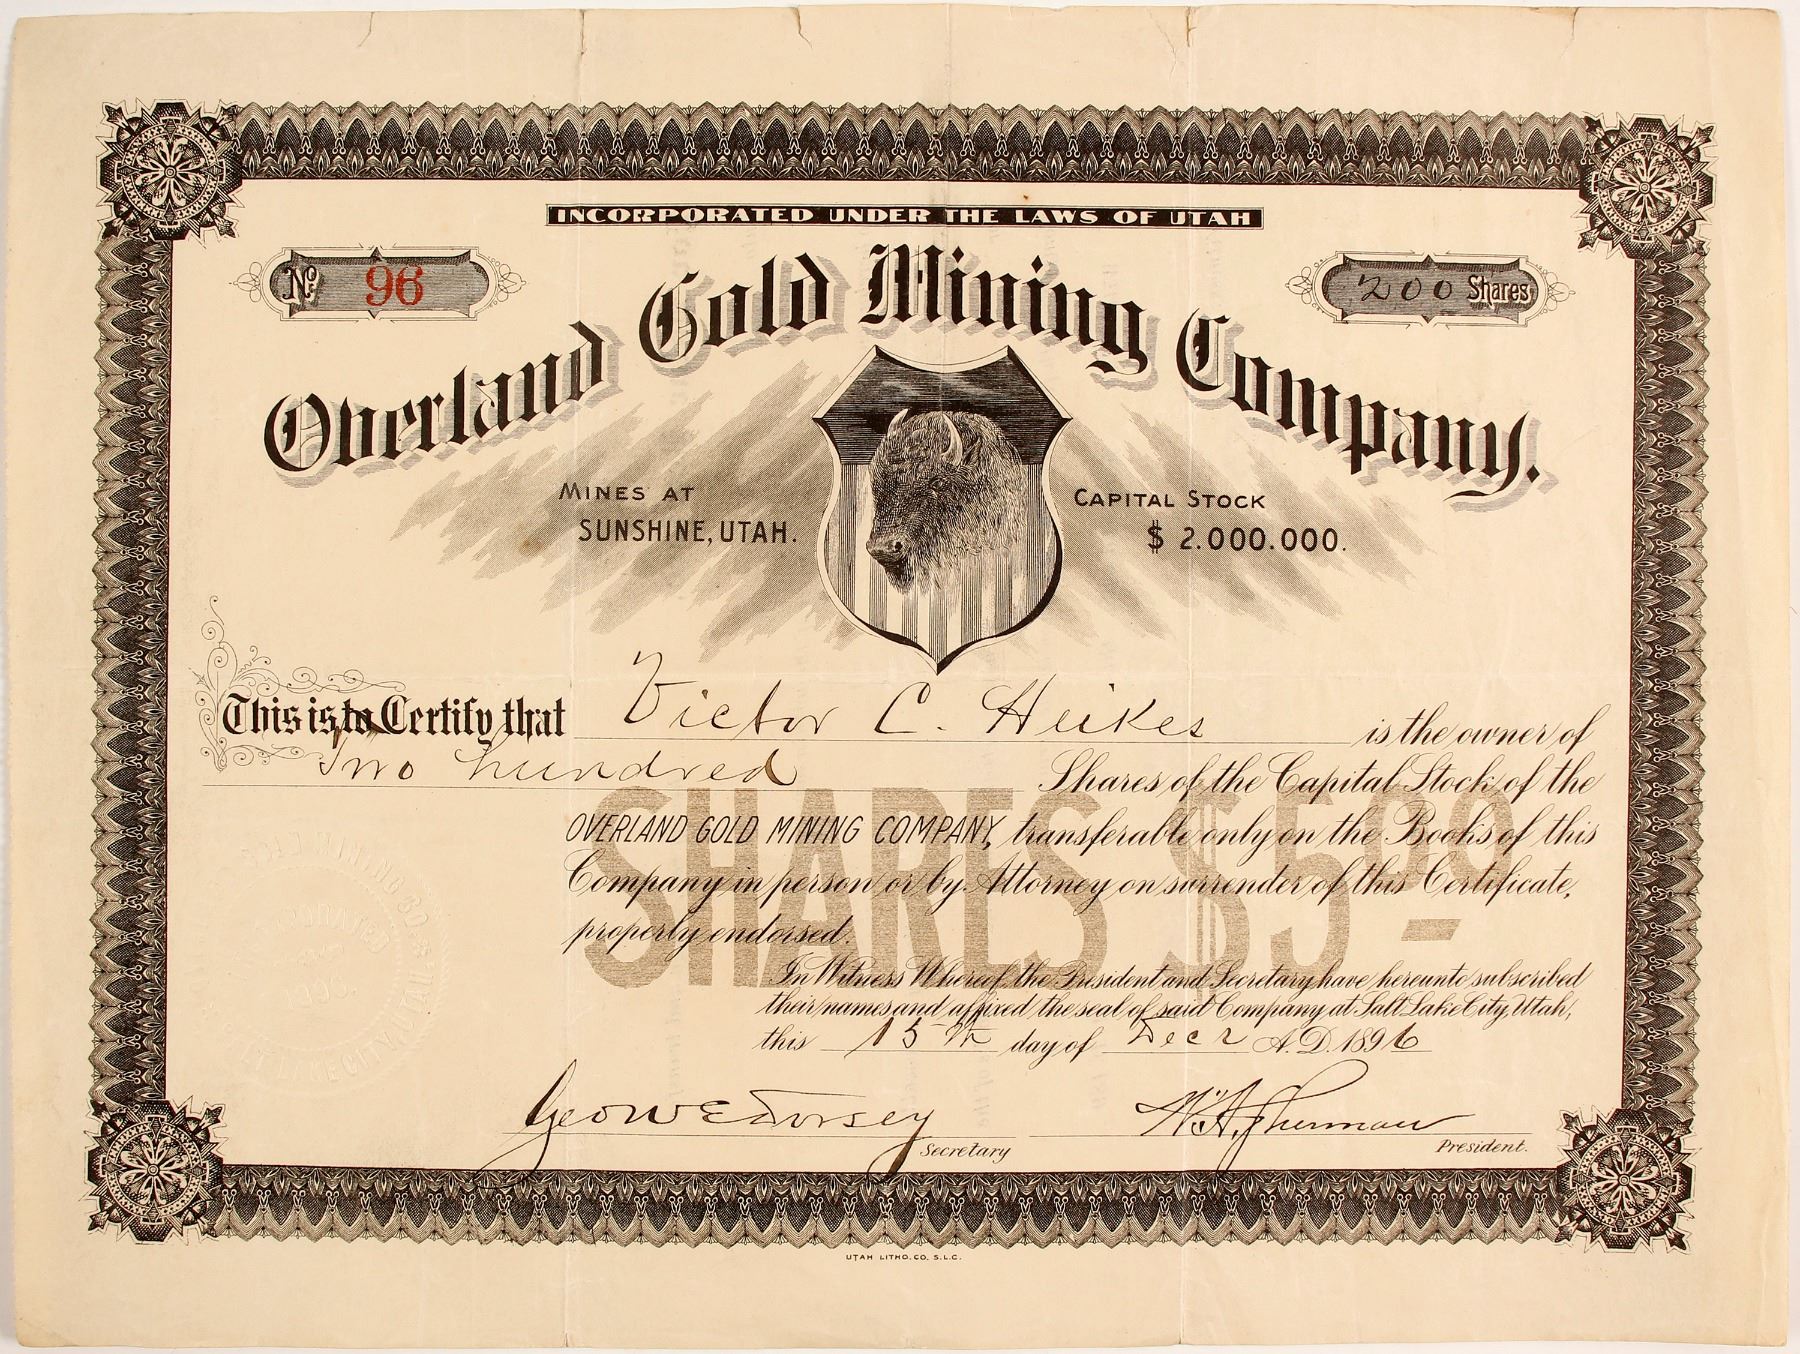 INCORPORATED UNDER THE LAWS OF UTAH
No 96
200 Shares
Overland Gold Mining Company.
MINES AT
SUNSHINE, UTAH.
CAPITAL STOCK
$ 2.000.000.
This is to Certify that Victor C. Heikes is the owner of
Two hundred Shares of the Capital Stock of the
OVERLAND GOLD MINING COMPANY, transferable only on the Books of this
Company in person or by Attorney on surrender of this Certificate,
properly endorsed.
SHARES $5.00
In Witness Whereof, the President and Secretary have hereunto subscribed
their names and affixed the seal of said Company at Salt Lake City, Utah,
this 15th day of Decr A.D. 1896
Geo W E Dorsey
Secretary
W.A. Sherman
President.
UTAH LITHO. CO. S.L.C.